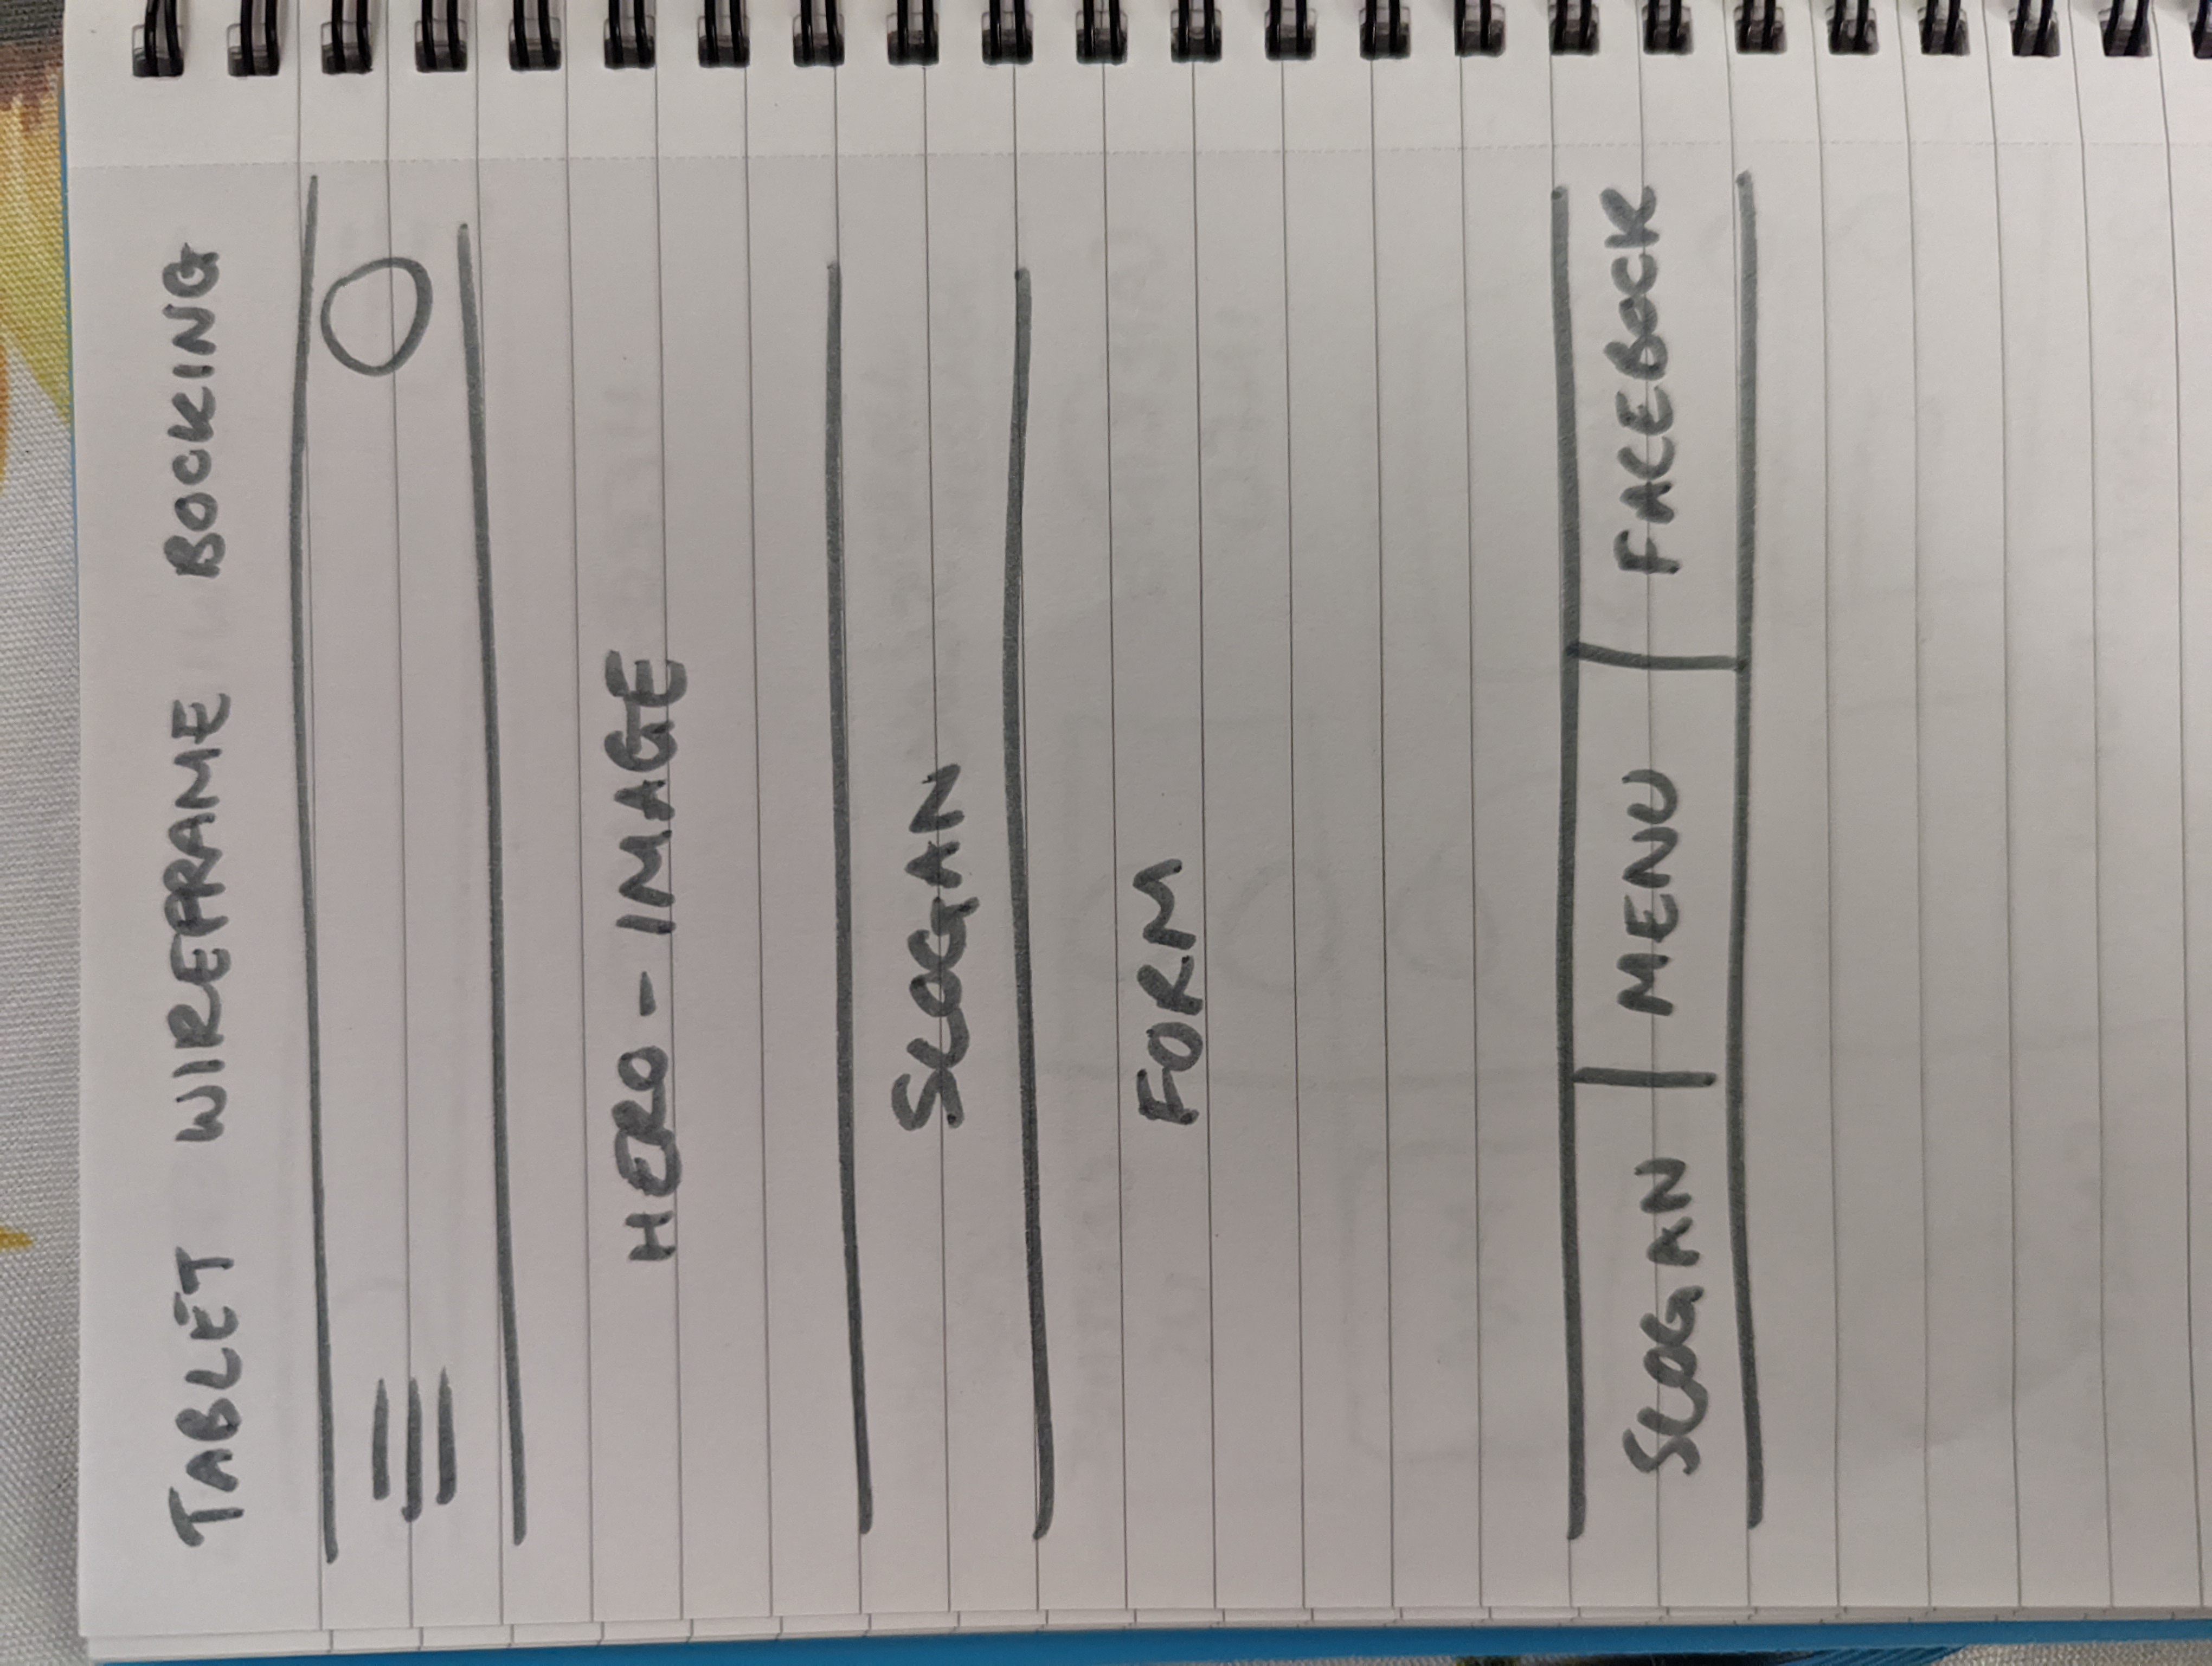 TABLET WIREFRAME BOOKING
HERO - IMAGE
SLOGAN
FORM
SLOGAN MENU FACEBOOK